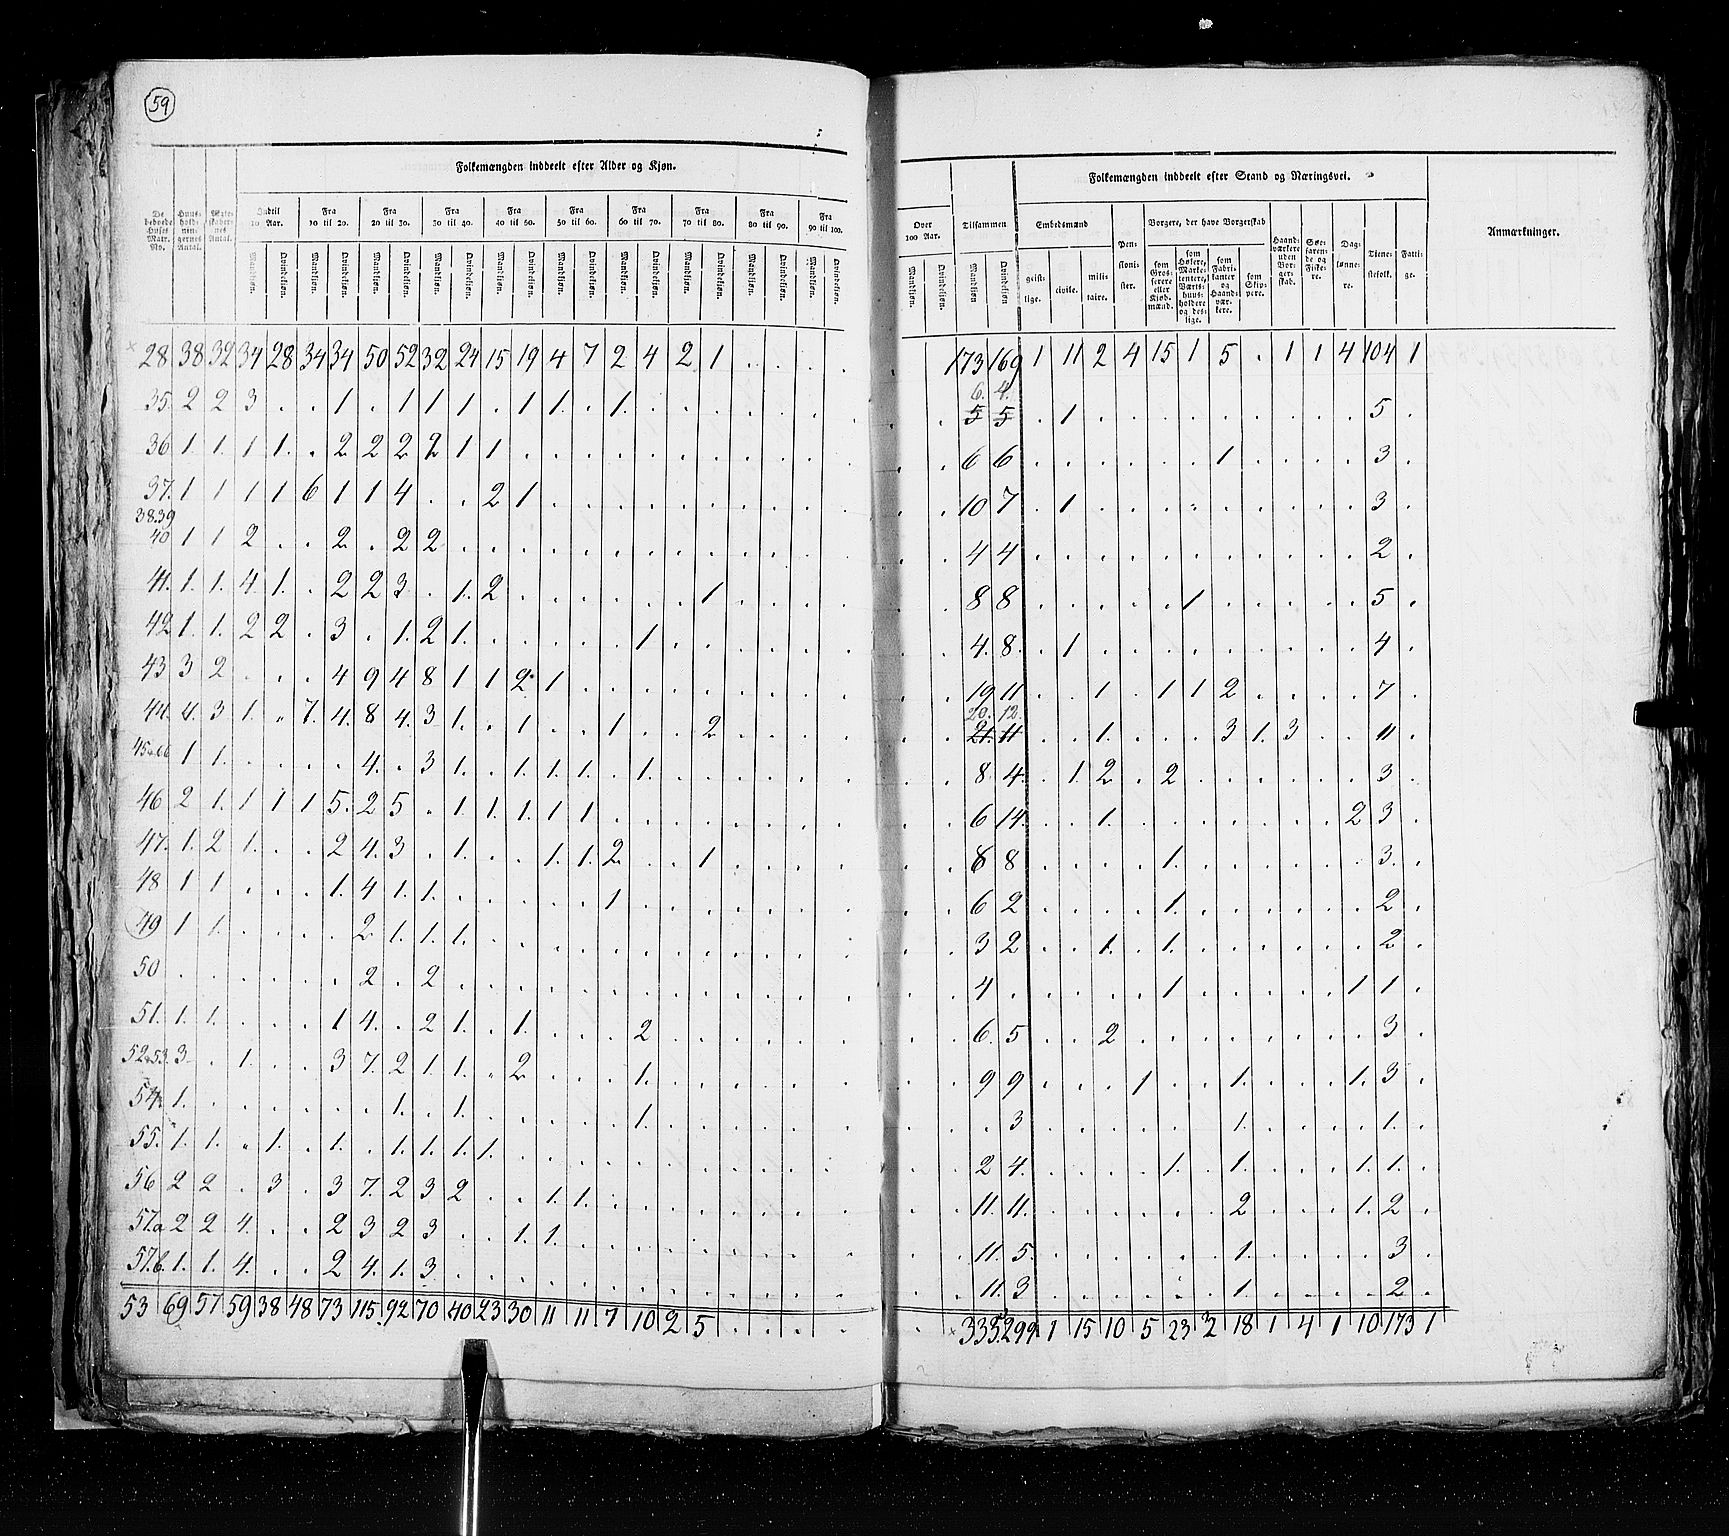 59
Folkemængden inddeelt efter Alder og Kjøn.
Folkemængden inddeelt efter Stand og Næringsvei.
De beboede Huses Matr. No.
Huus- hold- nin- gernes Antal.
Indtil 10 Aar.
Fra 10 til 20.
Fra 20 til 30.
Fra 30 til 40.
Fra 40 til 50.
Fra 50 til 60.
Fra 60 til 70.
Fra 70 til 80.
Fra 80 til 90.
Fra 90 til 100.
Over 100 Aar.
Tilsammen
Embedsmænd
Pen- sioni- ster.
Borgere, der have Borgerskab
Haand- værkere uden Bor- ger- skab.
Søe- faren- de og Fiske- re.
Dag- lønne- re.
Tiene- stefolk.
Fatti- ge.
Anmærkninger.
Mandkjøn. Qvindekjøn. Mandkjøn. Qvindekjøn. Mandkjøn. Qvindekjøn. Mandkjøn. Qvindekjøn. Mandkjøn. Qvindekjøn. Mandkjøn. Qvindekjøn. Mandkjøn. Qvindekjøn. Mandkjøn. Qvindekjøn. Mandkjøn. Qvindekjøn. Mandkjøn. Qvindekjøn. Mandkjøn. Qvindekjøn. Mandkjøn Qvindekjøn
geist- lige.
civile.
mili- taire.
som Gros- serere eller Kjøb- mænd.
som Høkere, Marke- tentere, Værts- huus- holdere og des- lige.
som Fabri- kanter og Haand- vær- kere.
som Skip- pere.
28 38 32 34 28 34 34 50 52 32 24 15 19 4 7 2 4 2 1 . . . . . 173 169 1 11 2 4 15 1 5 . 1 1 4 104 1
6. 4.
35. 2 2 3 . . 1 . 1 1 1 . 1 1 . 1 . . . . . . . . . 5 5 . 1 . . . . . . . . . 5 .
36 1. 1. 1 1. . 2 2 2 2 1 1 . . . . . . . . . . . . . 6 6 . . . . . . 1 . . . . 3 .
37. 1 1 1 1 6 1 1 4 . . 2 1 . . . . . . . . . . . . 10 7 . 1 . . . . . . . . . 3 .
38.39
40 1 1 2 . . 2 . 2 2 . . . . . . . . . . . . . . . 4 4 . . . . . . . . . . . 2 .
41. 1. 1. 4. 1. . 2 2 3 . 1. 2 . . . . . . 1 . . . . . . 8 8 . . . . . 1 . . . . . 5 .
42 1. 1. 2 2 . 3 . 1. 2 1. . . . . . 1 . . . . . . . . 4. 8. . 1 . . . . . . . . . 4 .
43 3 2 . . . 4 9 4 8 1 1 2 1 . . . . . . . . . . . 19 11 . . 1 . 1 1 2 . . . . 7 .
20. 12.
44. 4. 3 1. . 7. 4. 8 4. 3 1. . 1 . . 1 . . 2 . . . . . . 21. 11 . . 1. . . . 3 1. 3 . . 11 .
1 1 . . . . 4. . 3 1. . 1. 1. 1. . 1. . . . . . . . . 8 4. . 1. 2 . 2 . . . . . . 3 .
46 2 1. 1 1 1 5. 2 5 . 1 1. 1. 1 1 . . . . . . . . . . 6 14. . . 1. . . . . . . . 2 3 .
47. 1. 2 1. . . 2 4. 3 . 1. . . 1. 1. 2 . . 1 . . . . . . 8 8 . . . . 1. . . . . . . 3. .
48 1 1 . . . 1. 4 1. 1. . . . . . 1 . . . . . . . . . 6 2 . . . . 1. . . . . . . 2 .
49 1 1. . . . . 2 1. 1. 1. . . . . . . . . . . . . . . 3 2 . . 1. . 1. . . . . . . 2 .
50 . . . . . . 2 . 2 . . . . . . . . . . . . . . . 4 . . . . . 1 . . . . . 1 1 .
51. 1. 1. . . . 1 4. . 2 1. . 1. . . . 2 . . . . . . . . 6. 5 . . 2 . . . . . . . . 3 .
52.53. 3 . 1. . . 3 7. 2 1. 1. . 2 . . . 1. . . . . . . . . 9 9 . . . 1 . . 1. . . . 1. 3 .
54. 1. . . . . . . 1. . 1. . . . . . 1. . . . . . . . . . 3 . . . . . . 1. . . . . 1. .
55. 1. 1. . 1. . 1. . 1. 1. 1. 1. . . . . . . . . . . . . . 2 4. . . . . 1. . 1. . . . 1. 1. .
56 2 2 . 3 . 3 7. 2 3 2 . . 1. 1. . . . . . . . . . . 11. 11. . . . . . . 2 . . . 1. 2 .
57.a 2 2 4. . . 2 3 2 3 . . 1. 1. . . . . . . . . . . . 11. 5. . . . . . . 1. . . . . 3 .
57.b. 1. 1. 4. . . 2 4. 1. 3 . . . . . . . . . . . . . . . 11. 3 . . . . . . 1. . . . . 2 .
53 69 57 59 38 48 73 115. 92 70 40 23 30 11 11 7 10 2 5 . . . . . . 335. 299. 1 15 10 5 23 3 18 1 4 1 10 173 1